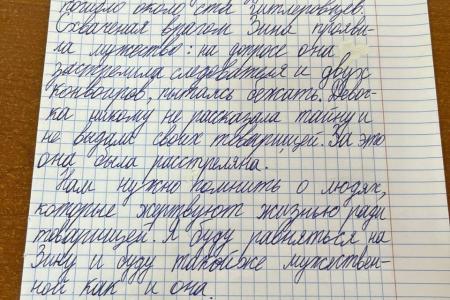 погибло около ста гитлеровцев.
Схваченая врагом Зина прояви-
ла мужество: на допросе она
застрелила следователя и двух
конвоиров, пытаясь бежать. Девоч-
ка никому не рассказала тайну и
не выдала своих товарищей. За это
она была расстреляна.
Нам нужно помнить о людях,
которые жертвуют жизнью ради
товарищей. Я буду равняться на
Зину и буду такой же мужествен-
ной как и она.